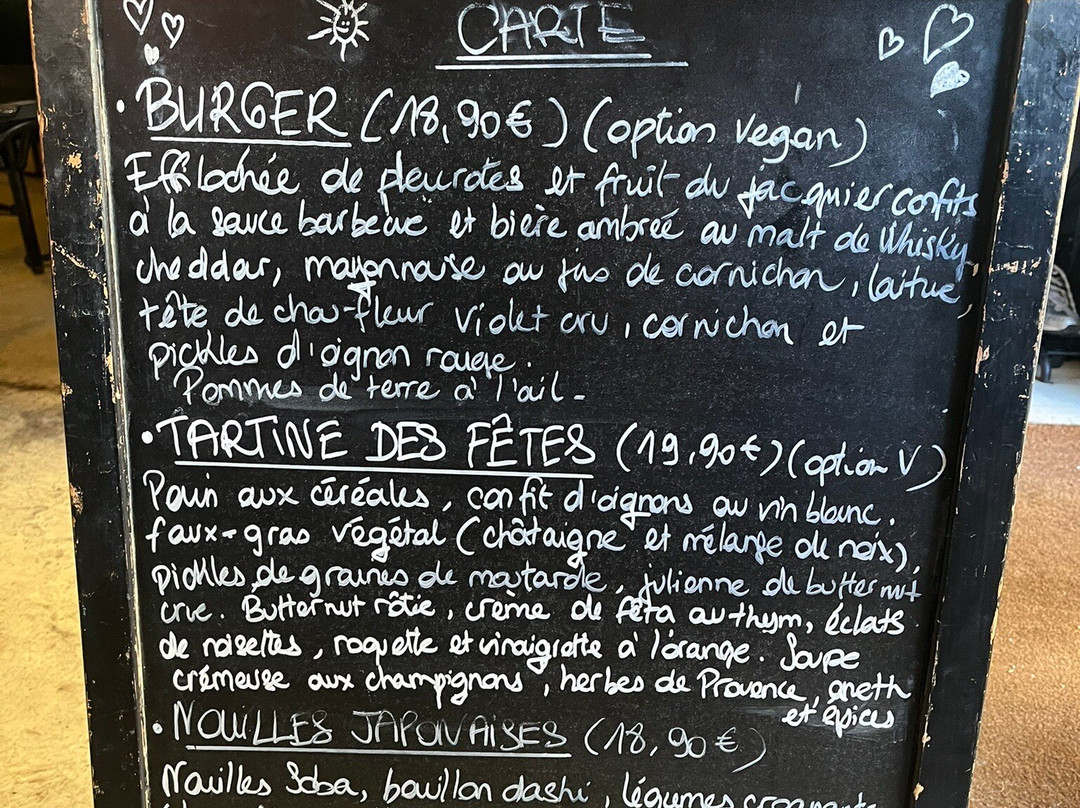 CARTE
• BURGER (18,90€) (option vegan)
Effilochée de pleurotes et fruit du jacquier confits
à la sauce barbecue et bière ambrée au malt de Whisky,
cheddar, mayonnaise au jus de cornichon, laitue,
tête de chou-fleur violet cru, cornichon et
pickles d'oignon rouge.
Pommes de terre à l'ail.
• TARTINE DES FÊTES (19,90€) (option V)
Pain aux céréales, confit d'oignons au vin blanc.
faux-gras végétal (châtaigne et mélange de noix),
pickles de graines de moutarde, julienne de butternut
crue. Butternut rôtie, crème de fêta au thym, éclats
de noisettes, roquette et vinaigrette à l'orange. Soupe
crémeuse aux champignons, herbes de Provence, aneth
et épices
• NOUILLES JAPONAISES (18,90€)
Nouilles Soba, bouillon dashi, légumes croquants